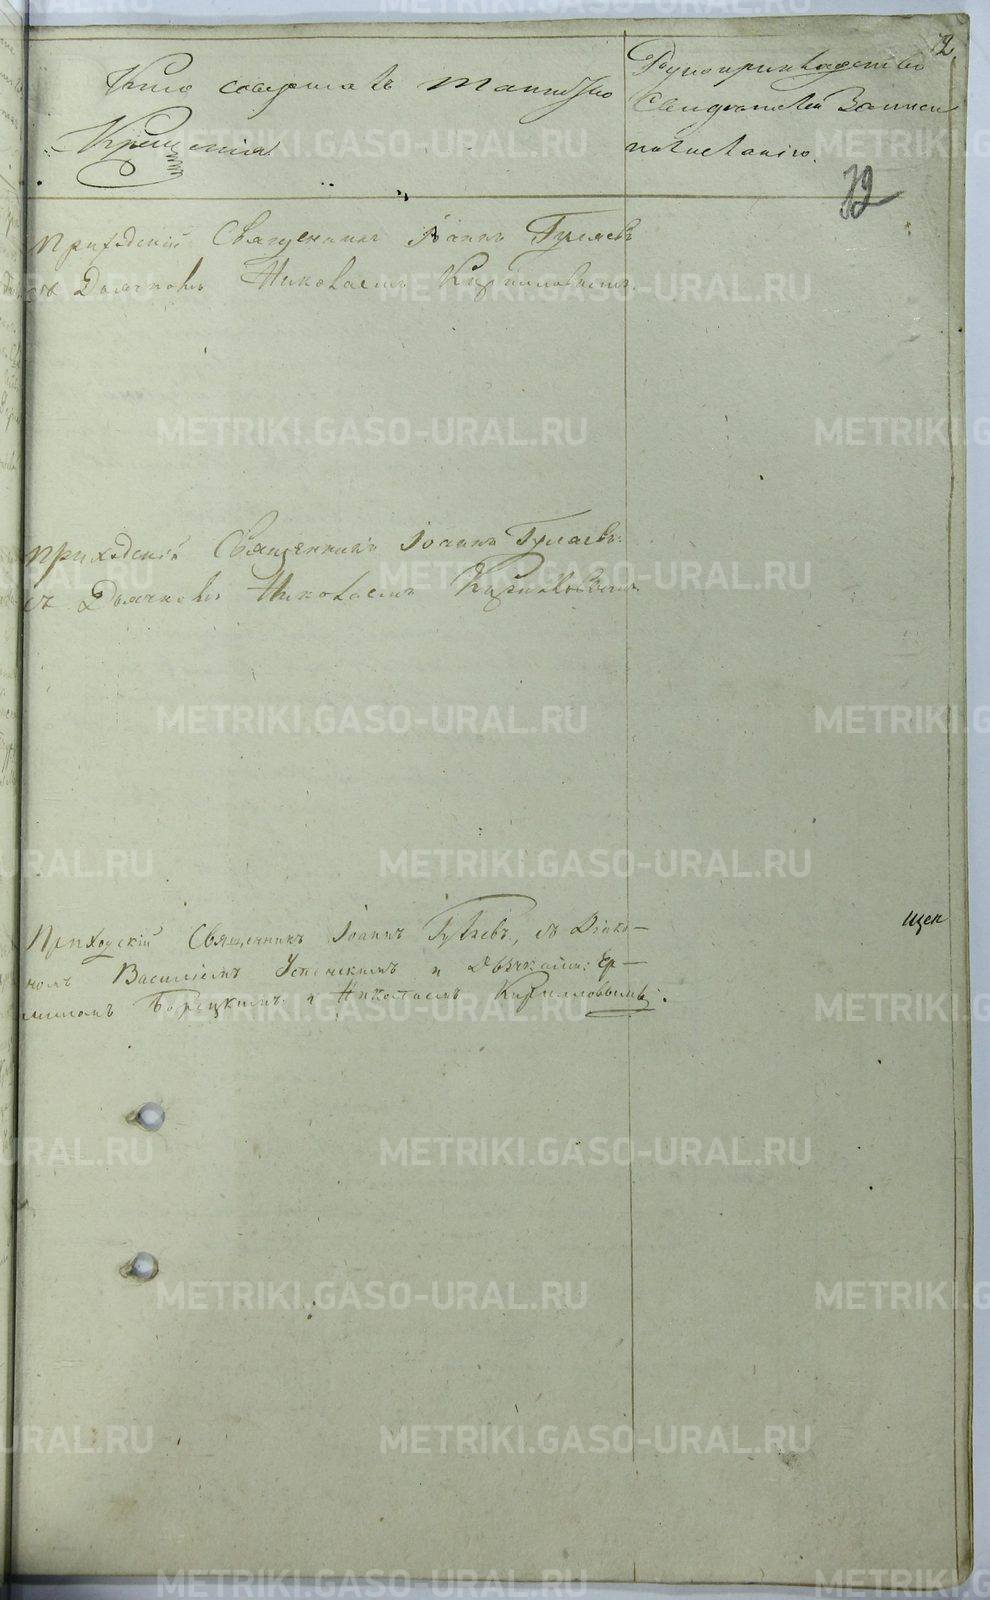 2
Кто совершалъ таинство
Крещенія.
Рукоприкладство
Свидѣтелей Записи
по желанію.
72
Приходскій Священникъ Іоаннъ Гуляевъ
съ Дьячкомъ Николаемъ Кирилловымъ.
Приходскій Священникъ Іоаннъ Гуляевъ
съ Дьячкомъ Николаемъ Кирилловымъ.
Приходскій Священникъ Іоаннъ Гуляевъ, съ Діако-
номъ Василіемъ Успенскимъ и Дьячками: Ер-
миломъ Борецкимъ и Николаемъ Кирилловымъ.
щен
METRIKI.GASO-URAL.RU